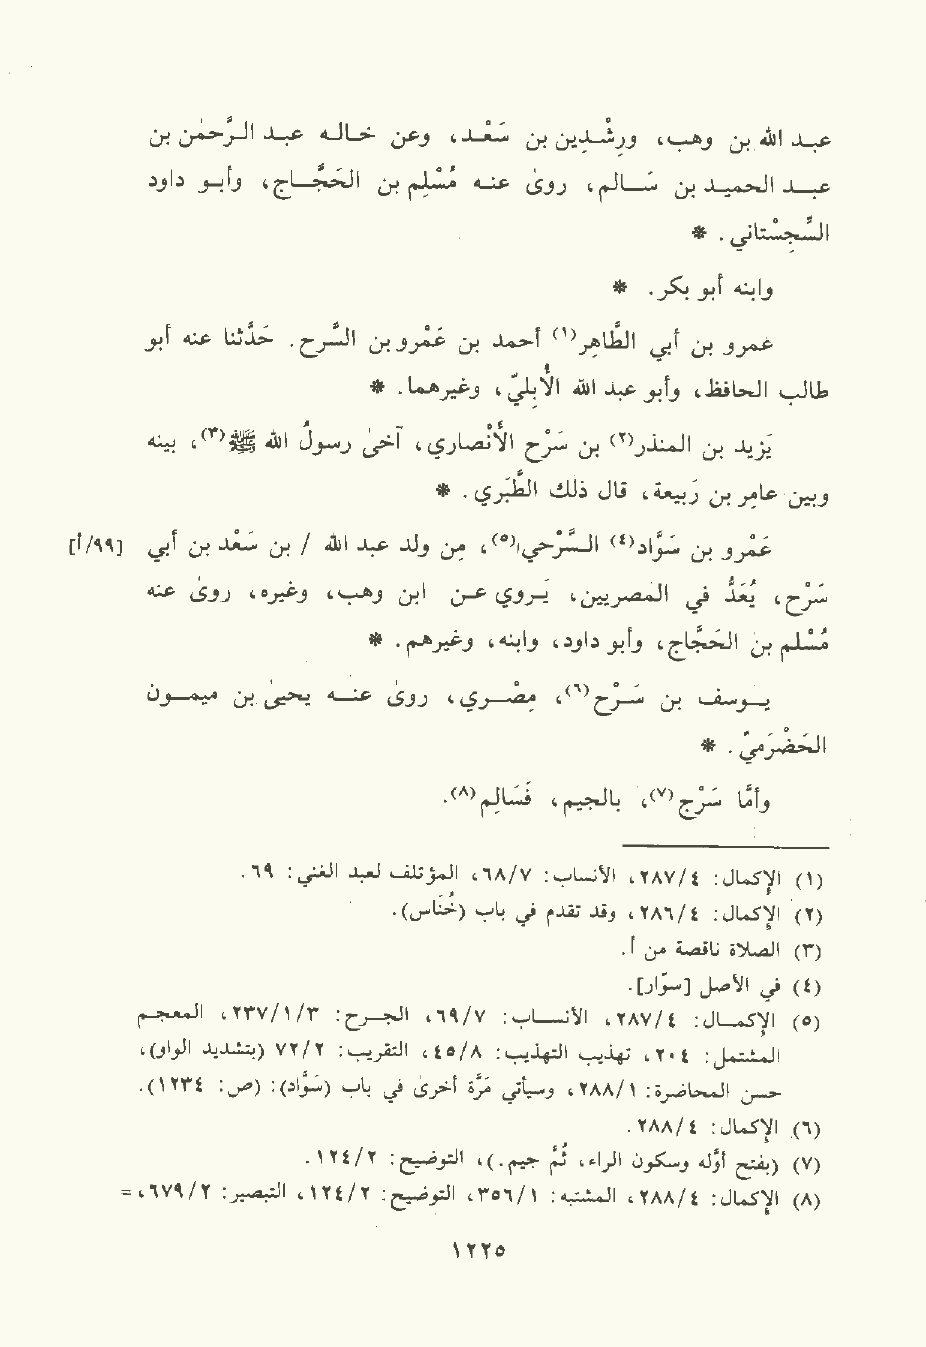 عبد الله بن وهب، ورِشْدِين بن سَعْد، وعن خاله عبد الرَّحمٰن بن
عبد الحميد بن سَالم، رویٰ عنه مُسْلِم بن الحَجَّاج، وأبو داود
السِّجِسْتاني. *
وابنه أبو بكر. *
عمرو بن أبي الطَّاهِر(١) أحمد بن عَمْرو بن السَّرح. حَدَّثنا عنه أبو
طالب الحافظ، وأبو عبد الله الأُبلِيّ، وغيرهما. *
يَزيد بن المنذر(٢) بن سَرْح الأنْصاري، آخىٰ رسولُ الله ﷺ(٣)، بينه
وبين عامِر بن رَبيعة، قال ذلك الطَّبَري. *
عَمْرو بن سَوَّاد(٤) السَّرْحي،(٥)، من ولد عبد الله / بن سَعْد بن أبي [٩٩/أ]
سَرْح، يُعَدُّ في المصريين، يَروي عن ابن وهب، وغيره، رویٰ عنه
مُسْلم بن الحَجَّاج، وأبو داود، وابنه، وغيرهم. *
يوسف بن سَرْح(٦)، مِصْري، رویٰ عنه يحيىٰ بن ميمون
الحَضْرَميّ. *
وأمَّا سَرْج(٧)، بالجيم، فَسَالِم(٨).
(١) الإكمال: ٢٨٧/٤، الأنساب: ٦٨/٧، المؤتلف لعبد الغني: ٦٩.
(٢) الإكمال: ٢٨٦/٤، وقد تقدم في باب (خُنَاس).
(٣) الصلاة ناقصة من أ.
(٤) في الأصل [سوّار].
(٥) الإكمال: ٢٨٧/٤، الأنساب: ٦٩/٧، الجرح: ٢٣٧/١/٣، المعجم
المشتمل: ٢٠٤، تهذيب التهذيب: ٤٥/٨، التقريب: ٧٢/٢ (بتشديد الواو)،
حسن المحاضرة: ٢٨٨/١، وسيأتي مَرّة أخرىٰ في باب (سَوَّاد): (ص: ١٢٣٤).
(٦) الإكمال: ٢٨٨/٤.
(٧) (بفتح أوّله وسكون الراء، ثُمَّ جيم.)، التوضيح: ١٢٤/٢.
(٨) الإكمال: ٢٨٨/٤، المشتبه: ٣٥٦/١، التوضيح: ١٢٤/٢، التبصير: ٦٧٩/٢، =
١٢٢٥